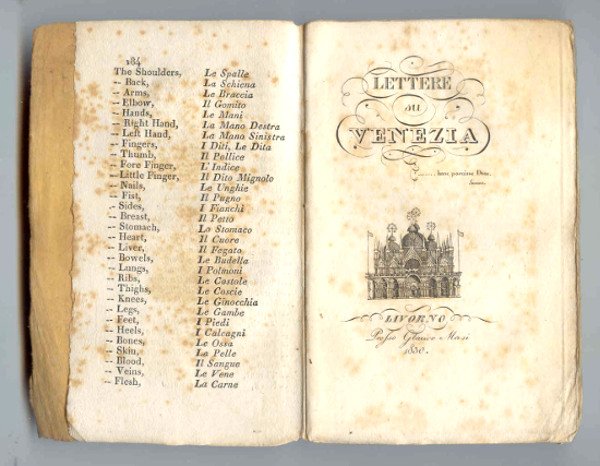 184
The Shoulders, Le Spalle
-- Back, La Schiena
-- Arms, Le Braccia
-- Elbow, Il Gomito
-- Hands, Le Mani
-- Right Hand, La Mano Destra
-- Left Hand, La Mano Sinistra
-- Fingers, I Diti, Le Dita
-- Thumb, Il Pollice
-- Fore Finger, L'Indice
-- Little Finger, Il Dito Mignolo
-- Nails, Le Unghie
-- Fist, Il Pugno
-- Sides, I Fianchi
-- Breast, Il Petto
-- Stomach, Lo Stomaco
-- Heart, Il Cuore
-- Liver, Il Fegato
-- Bowels, Le Budella
-- Lungs, I Polmoni
-- Ribs, Le Costole
-- Thighs, Le Coscie
-- Knees, Le Ginocchia
-- Legs, Le Gambe
-- Feet, I Piedi
-- Heels, I Calcagni
-- Bones, Le Ossa
-- Skin, La Pelle
-- Blood, Il Sangue
-- Veins, Le Vene
-- Flesh, La Carne
LETTERE
su
VENEZIA
LIVORNO
Presso Glauco Masi
1830.